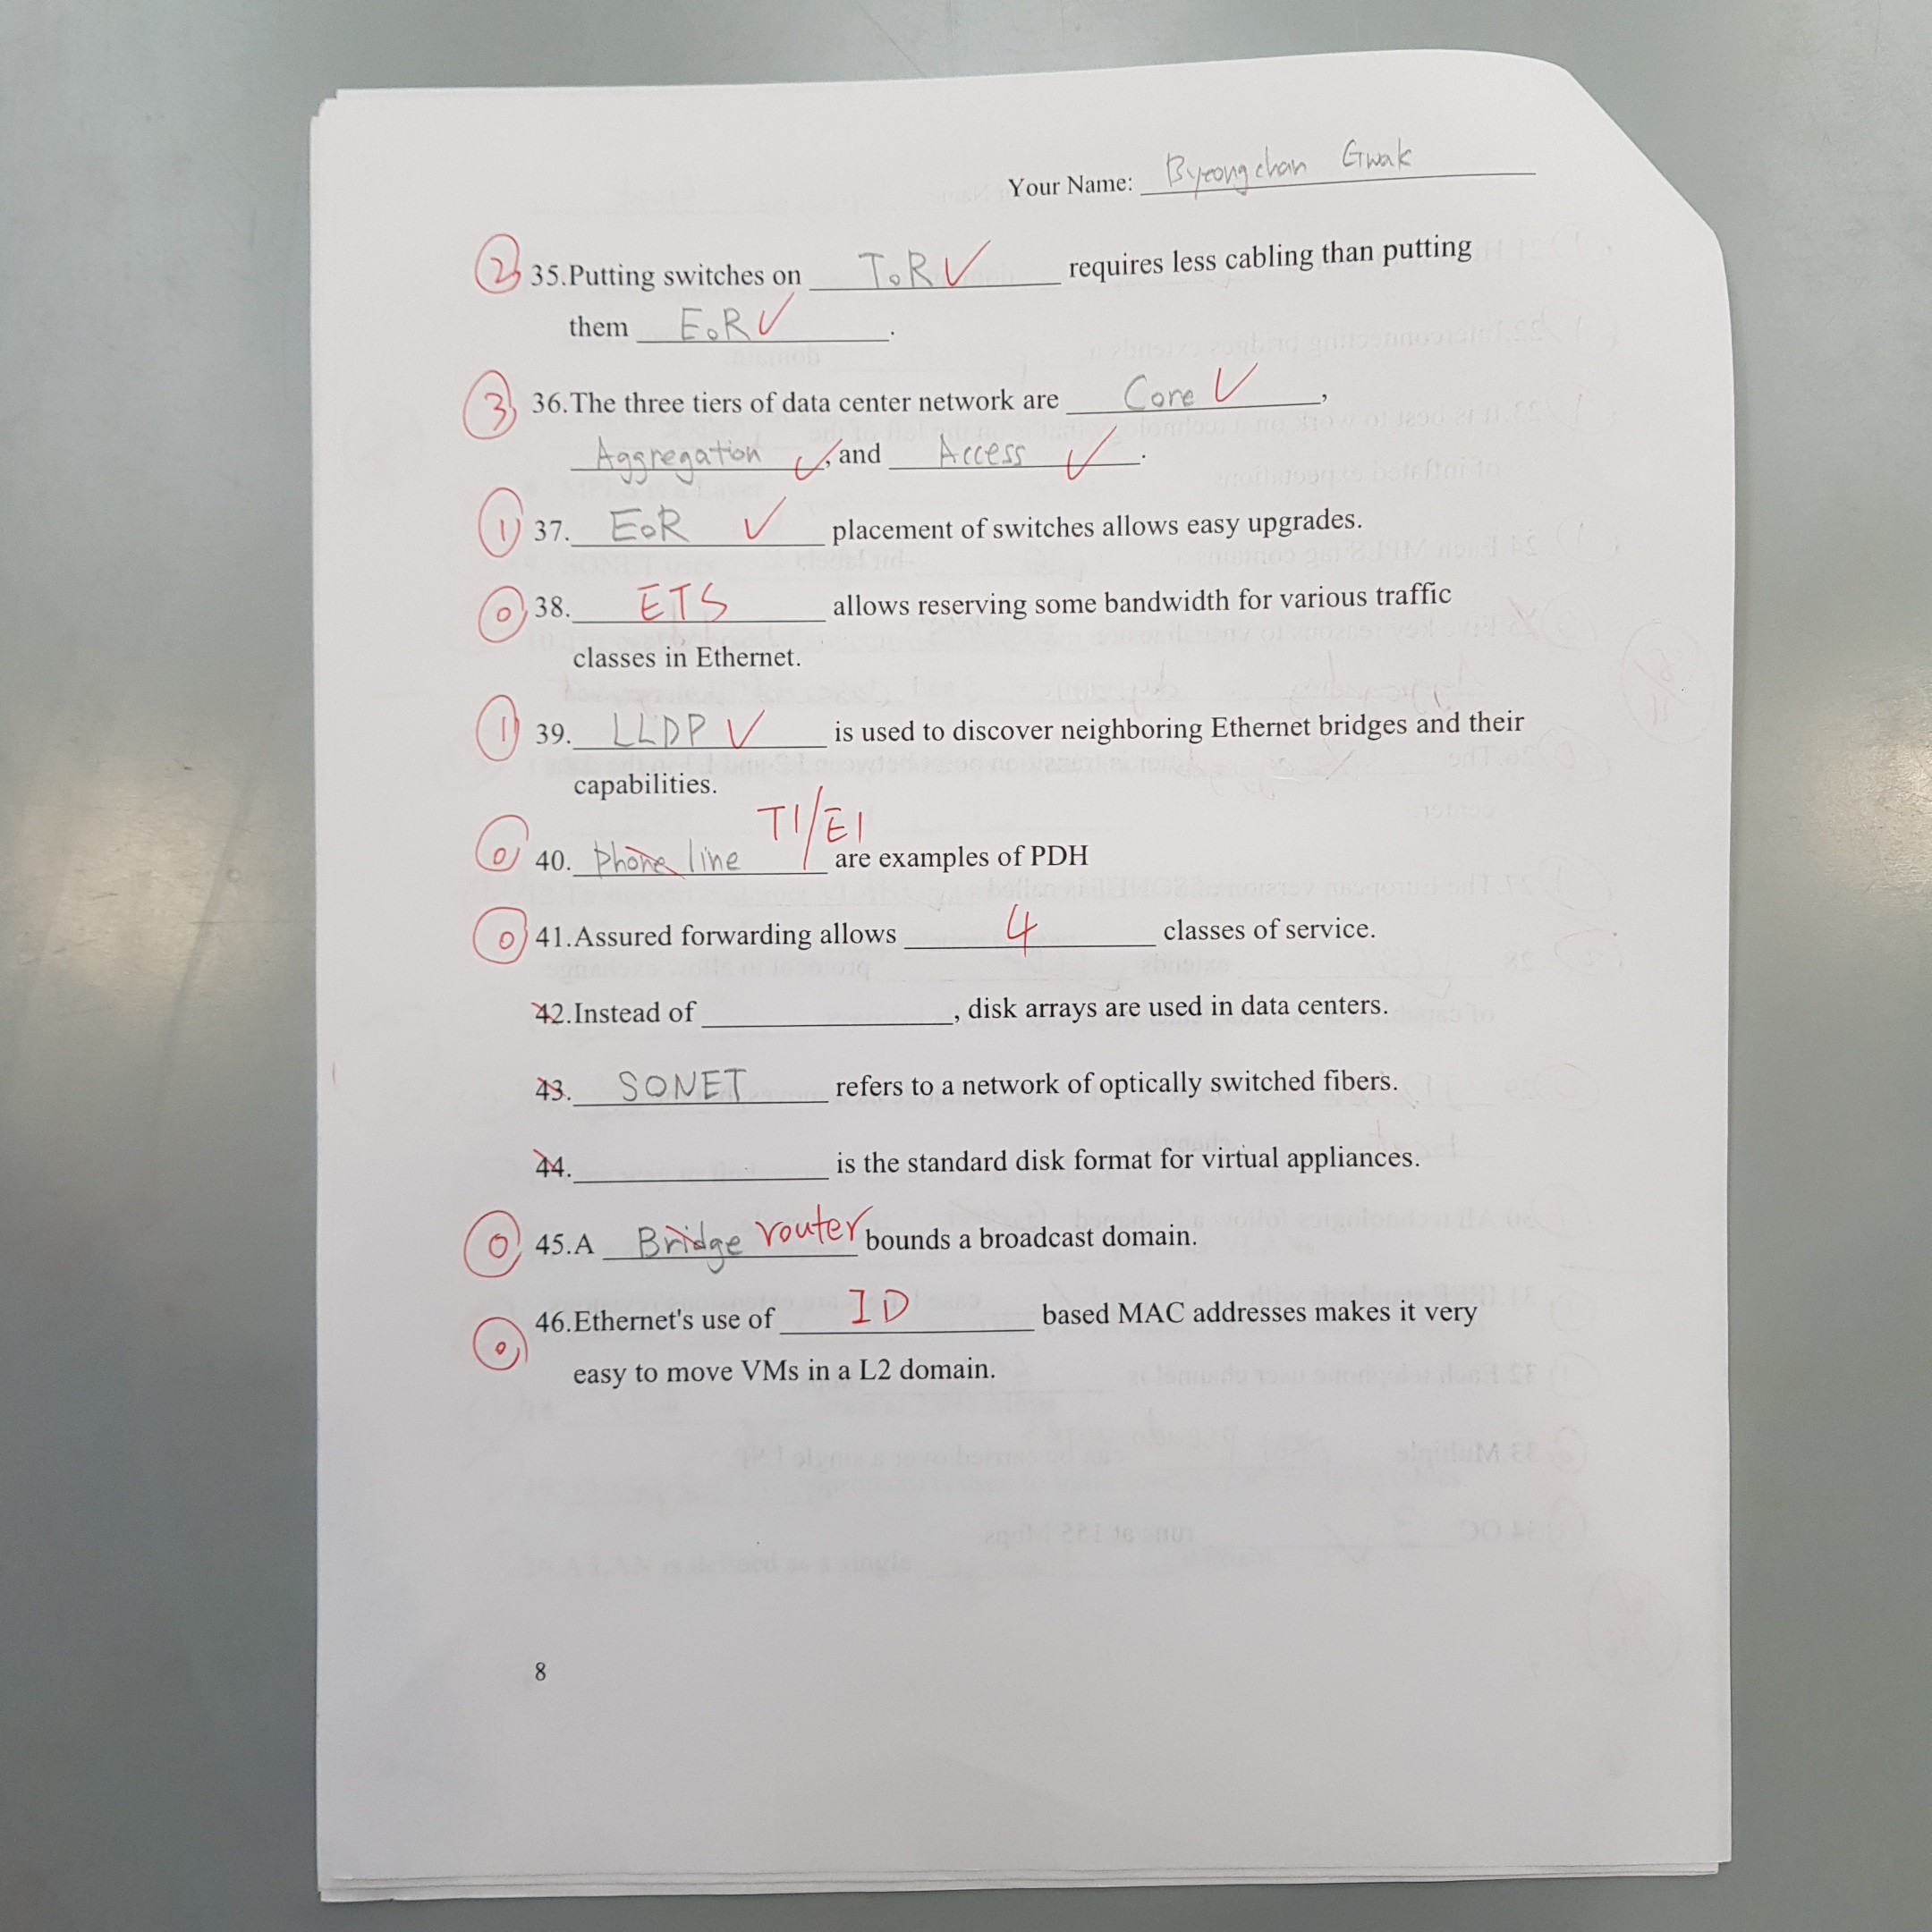 Your Name: Byeongchan Gwak
2 35.Putting switches on ToR ✓ requires less cabling than putting
them EoR ✓.
3 36.The three tiers of data center network are Core ✓,
Aggregation ✓, and Access ✓.
1 37. EoR ✓ placement of switches allows easy upgrades.
0 38. ETS allows reserving some bandwidth for various traffic
classes in Ethernet.
1 39. LLDP ✓ is used to discover neighboring Ethernet bridges and their
capabilities.
T1/E1
0 40. phone line are examples of PDH
0 41.Assured forwarding allows 4 classes of service.
42.Instead of , disk arrays are used in data centers.
43. SONET refers to a network of optically switched fibers.
44. is the standard disk format for virtual appliances.
0 45.A Bridge router bounds a broadcast domain.
0 46.Ethernet's use of ID based MAC addresses makes it very
easy to move VMs in a L2 domain.
8